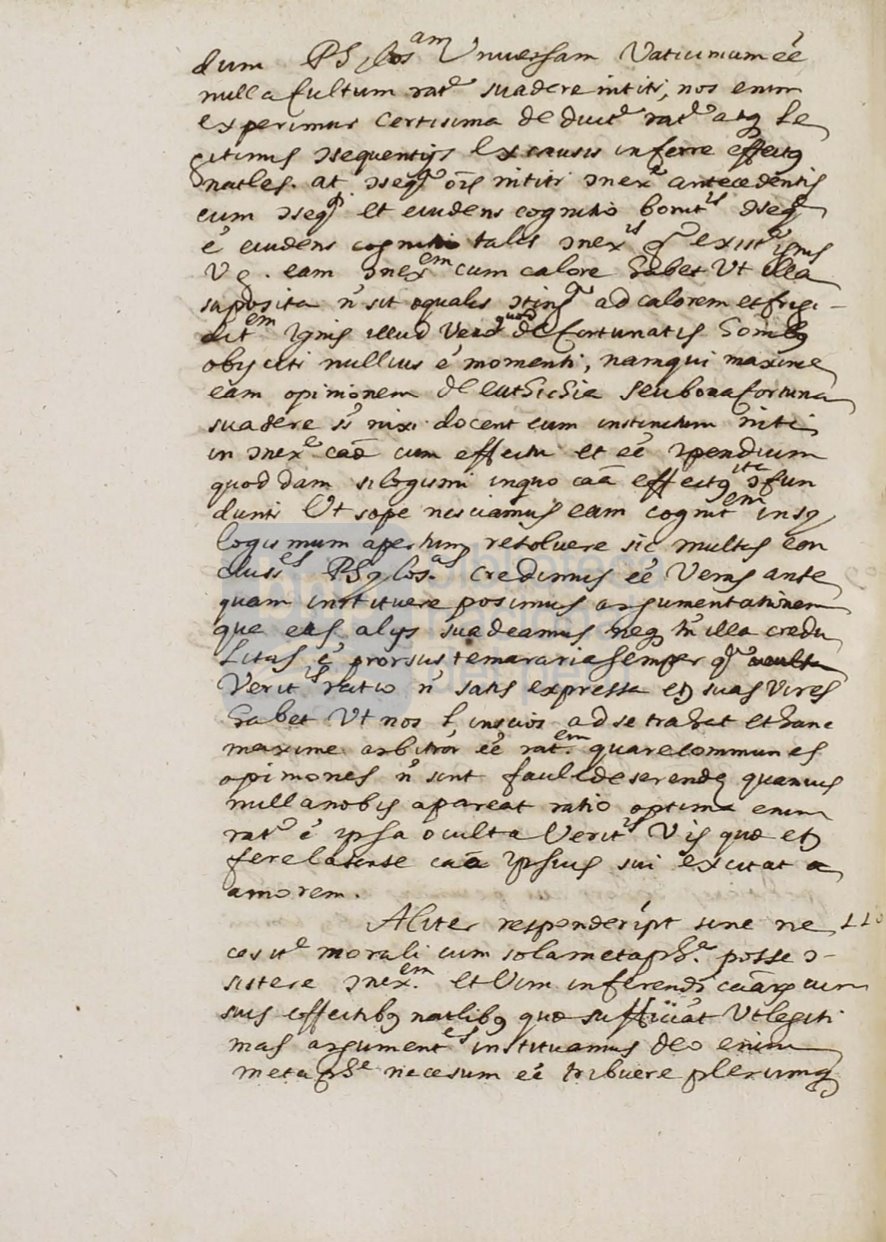 dum PHylosam Universam Vaticinium eē
nulla fultum rate suadere initiri, nos enim
experimur certisima deduct ratē atq Le
gitimis ɔsequentijs ex causis inferre effectq
natles. at ɔseqa oīs nititr ɔnexe antecedentis
cum ɔseqa et euidens cognitio bonitis ɔseqa
ē euidens cognitio talis ɔnexis qa existe ignis
V g. eam ɔnexem cum calore habet Ut illa
suposita ñ sit equalis ɔtinga ad calorem et frigi-
ditem ignis illud Vero quod de fortunatis homibq
obijciti nullius ē momenti, namqui maxime
eam opinionem de euthichia seu bona fortuna
suadere st nixi docent eum instinctum niti
in ɔnexe caā cum effectu et eē ɔpendium
quoddam silogismi inquo caā effectq ita ɔfun
dunti Ut sæpe nesciamus eam cognitem insy
logismum apertum resoluere sic multis con
clusies PHylosas credimus eē Veras ante
quam instituere posimus argumentationem
que eas alijs suadeamus neq tn illa credu
Litas ē prorsus temararia semper qa
Veritis ratio ñ satis expressa etq suas Vires
habet Ut nos l inscios ad se trahat et hanc
maxime arbitror eē ratem quare communes
opiniones ñ sunt facile deserendę quamuis
nulla nobis apareat ratio optima enim
rate ē ipsa oculta Veritis Vis quæ etq
fere latente caā ipsius sui excitat
amorem.
Aliter responderi pt sine ne 110
cesite morali cum sola metaphe posse ɔ-
sistere ɔnexem et Uim inferendi caārq cum
suis effectibq natlibq quæ sufficiat Ut legiti
mas argumentes instituamus deo enim
metaphe necesum eē tribuere plerumq